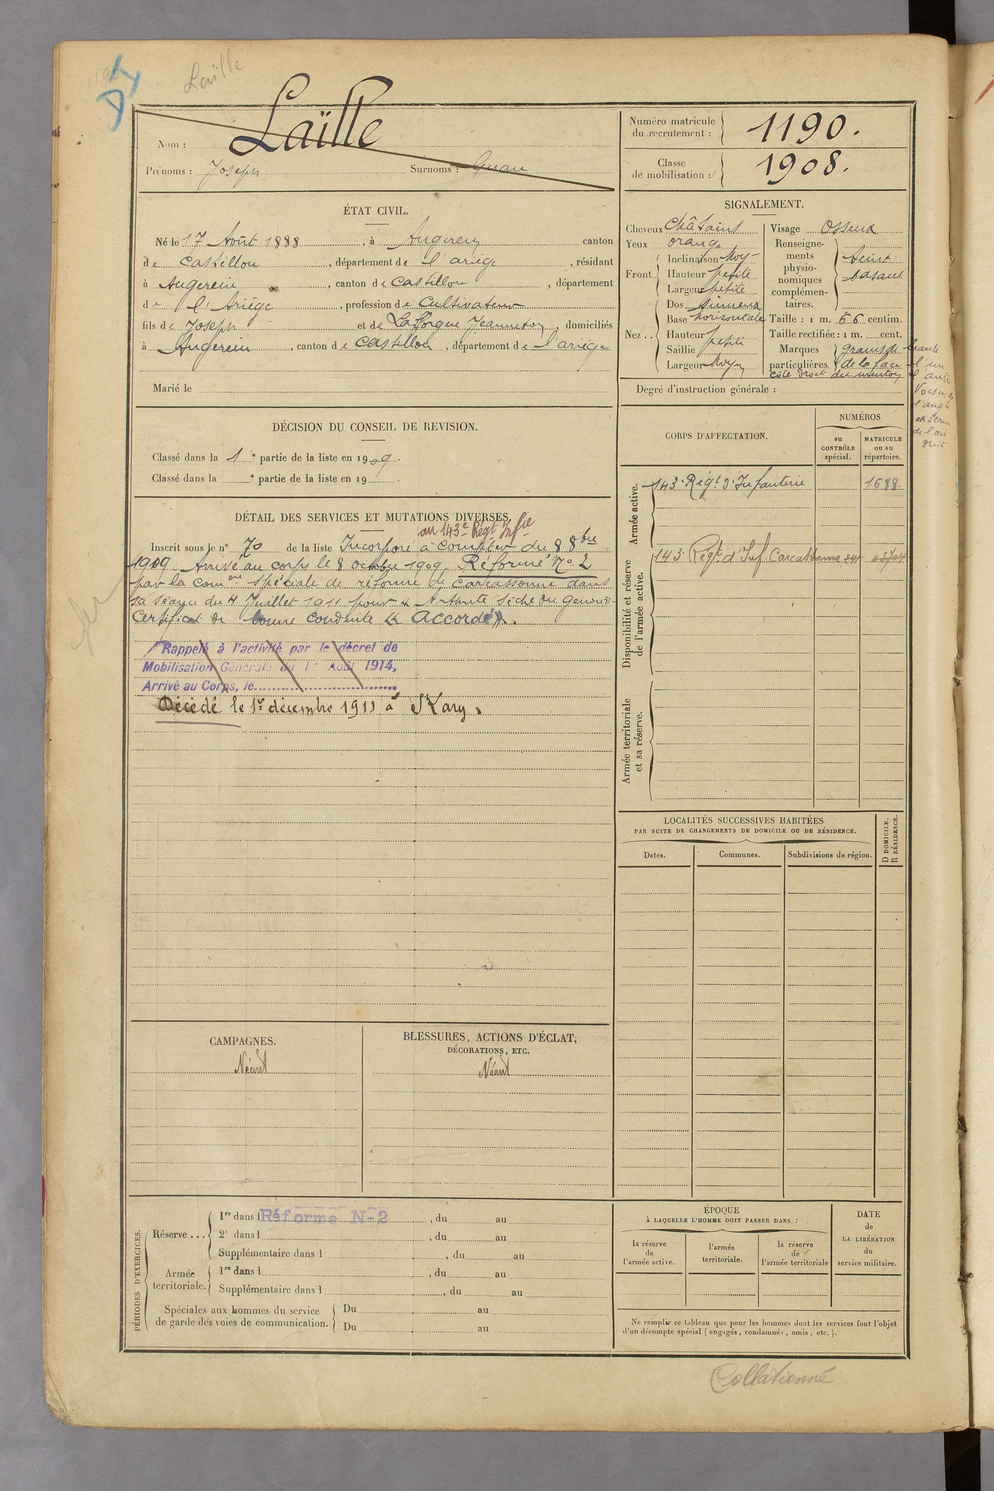 Laïlle
Laïlle
Nom :
Prénoms : Joseph Surnoms :
Numéro matricule du recrutement : 1190.
Classe de mobilisation : 1908.
ÉTAT CIVIL.
Né le 17 Août 1888, à Augerein canton
de Castillon, département de l'ariège, résidant
à Augerein, canton de Castillon, département
de l'Ariège, profession de Cultivateur
fils de Joseph et de Lafforgue Jeanneton, domiciliés
à Augerein, canton de Castillon, département de l'ariège
Marié le
SIGNALEMENT.
Cheveux Châtains
Yeux orangé
Front Inclinaison Moy-
Hauteur petite
Largeur petite
Nez .. Dos sinueux
Base horizontale
Hauteur petite
Saillie
Largeur Moy
Visage Osseux
Renseignements physionomiques complémentaires. teint basané
Taille : 1 m. 66 centim.
Taille rectifiée : 1 m. cent.
Marques particulières. Grains de
de la face
côté droit du menton
Degré d'instruction générale :
DÉCISION DU CONSEIL DE REVISION.
Classé dans la 1e partie de la liste en 1909.
Classé dans la e partie de la liste en 19
DÉTAIL DES SERVICES ET MUTATIONS DIVERSES.
au 143e Régt Infie
Inscrit sous le n° 70 de la liste Incorporé à compter du 8 8bre
1909 Arrivé au corps le 8 octobre 1909. Réformé N° 2
par la Comon spéciale de réforme de Carcassonne dans
sa séance du 4 Juillet 1911 pour
Certificat de bonne conduite Accordé.
Rappelé à l'activité par le décret de
Mobilisation Générale du 1er Août 1914,
Arrivé au Corps, le
Décédé le 1er décembre 1911 à
CORPS D'AFFECTATION.
NUMÉROS
au CONTRÔLE spécial.
MATRICULE ou au répertoire.
Armée active.
143e Régt d'Infanterie 1688
Disponibilité et réserve de l'armée active.
143e Régt d'Inf Carcassonne
Armée territoriale et sa réserve.
LOCALITÉS SUCCESSIVES HABITÉES
PAR SUITE DE CHANGEMENTS DE DOMICILE OU DE RÉSIDENCE.
D DOMICILE. R RÉSIDENCE.
Dates. Communes. Subdivisions de région.
CAMPAGNES.
Néant
BLESSURES, ACTIONS D'ÉCLAT,
DÉCORATIONS, ETC.
Néant
PÉRIODES D'EXERCICES.
Réserve ... 1re dans l Réformé N-2, du au
2e dans l , du au
Supplémentaire dans l , du au
Armée territoriale. 1re dans l , du au
Supplémentaire dans l , du au
Spéciales aux hommes du service
de garde des voies de communication.
Du au
Du au
ÉPOQUE
À LAQUELLE L'HOMME DOIT PASSER DANS :
la réserve de l'armée active.
l'armée territoriale.
la réserve de l'armée territoriale
DATE de LA LIBÉRATION du service militaire.
Ne remplir ce tableau que pour les hommes dont les services font l'objet
d'un décompte spécial (engagés, condamnés, omis, etc.).
Collationné